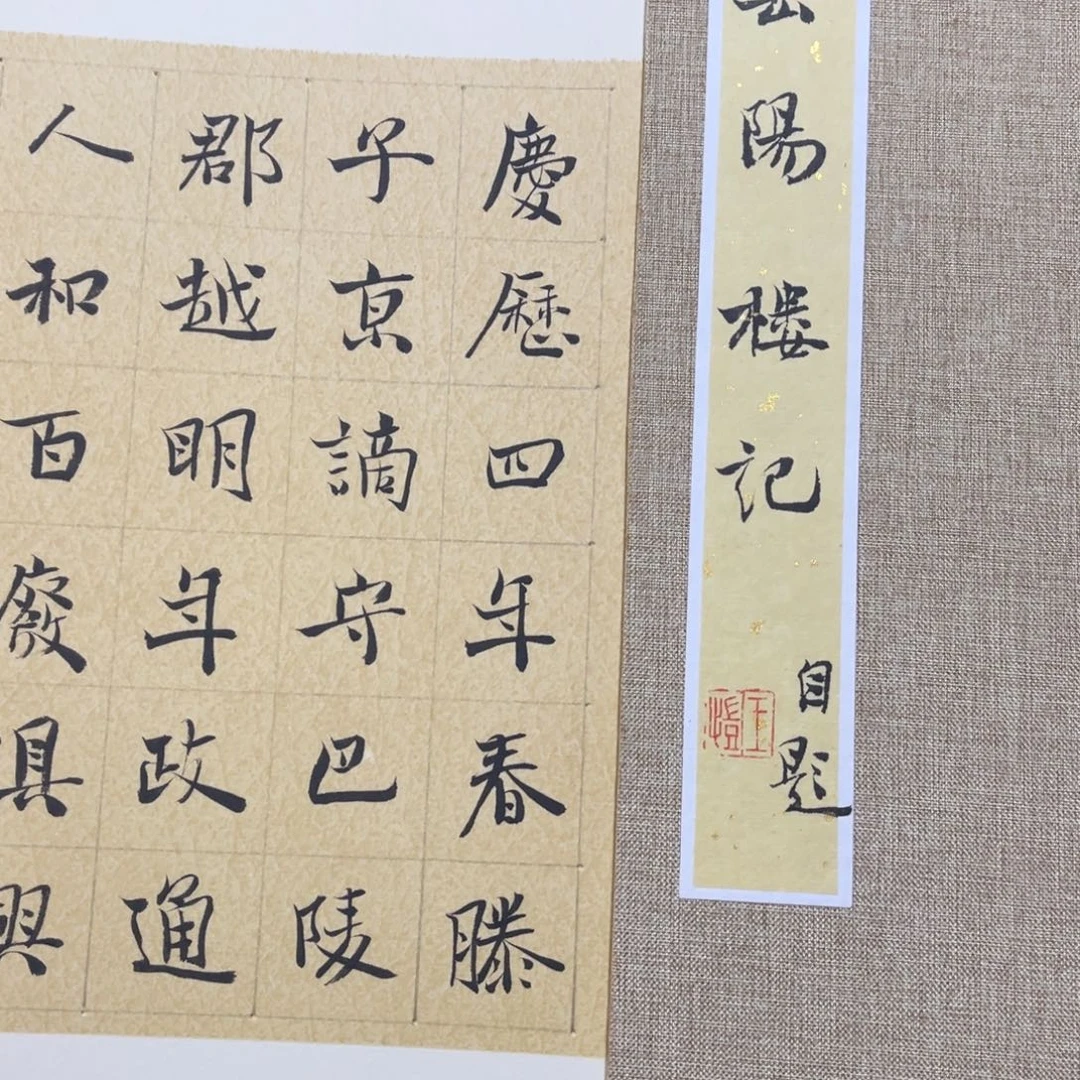 陽樓記
自題
慶歷四年春滕
子亰謫守巴陵
郡越明年政通
人和百廢具興